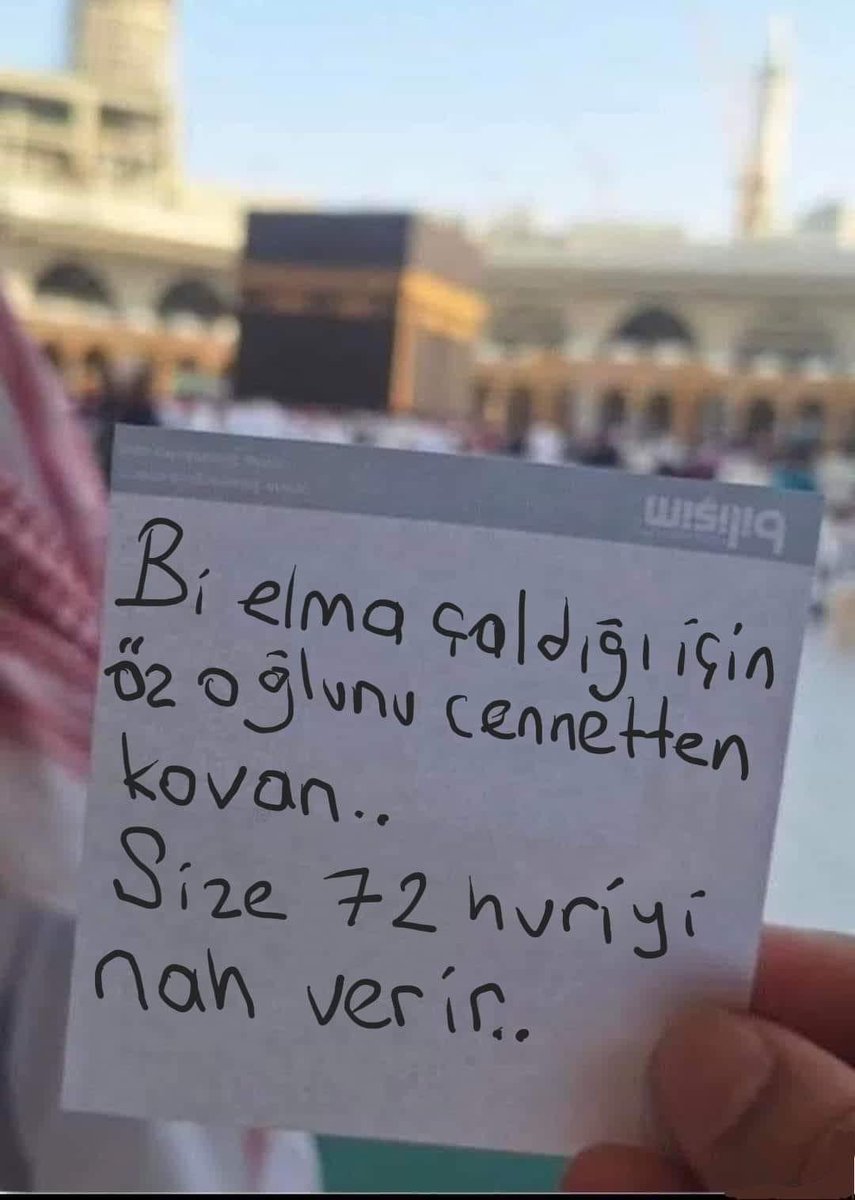 bilişim
Bi elma çaldığı için
öz oğlunu cennetten
kovan..
Size 72 huriyi
nah verir..